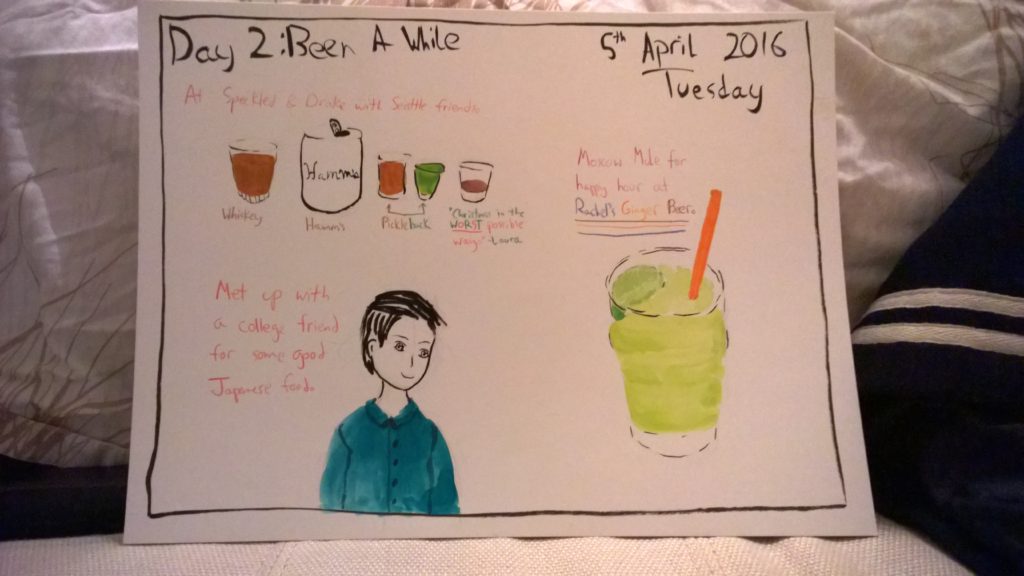 Day 2: Been A While
5th April 2016
Tuesday
At Speckled & Drake with Seattle friends
Hamm's
Whiskey
Hamm's
Pickleback
"Christmas in the
WORST possible
ways" -Laura
Moscow Mule for
happy hour at
Rachel's Ginger Beer.
Met up with
a college friend
for some good
Japanese food.